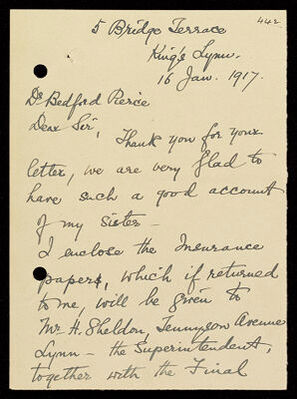 442
5 Bridge Terrace
King's Lynn.
16 Jan. 1917.
Dr Bedford Pierce
Dear Sir,
Thank you for your
letter, we are very glad to
have such a good account
of my sister –
I enclose the Insurance
papers, which if returned
to me, will be given to
Mr H. Sheldon, Tennyson Avenue
Lynn – the Superintendent,
together with the Final